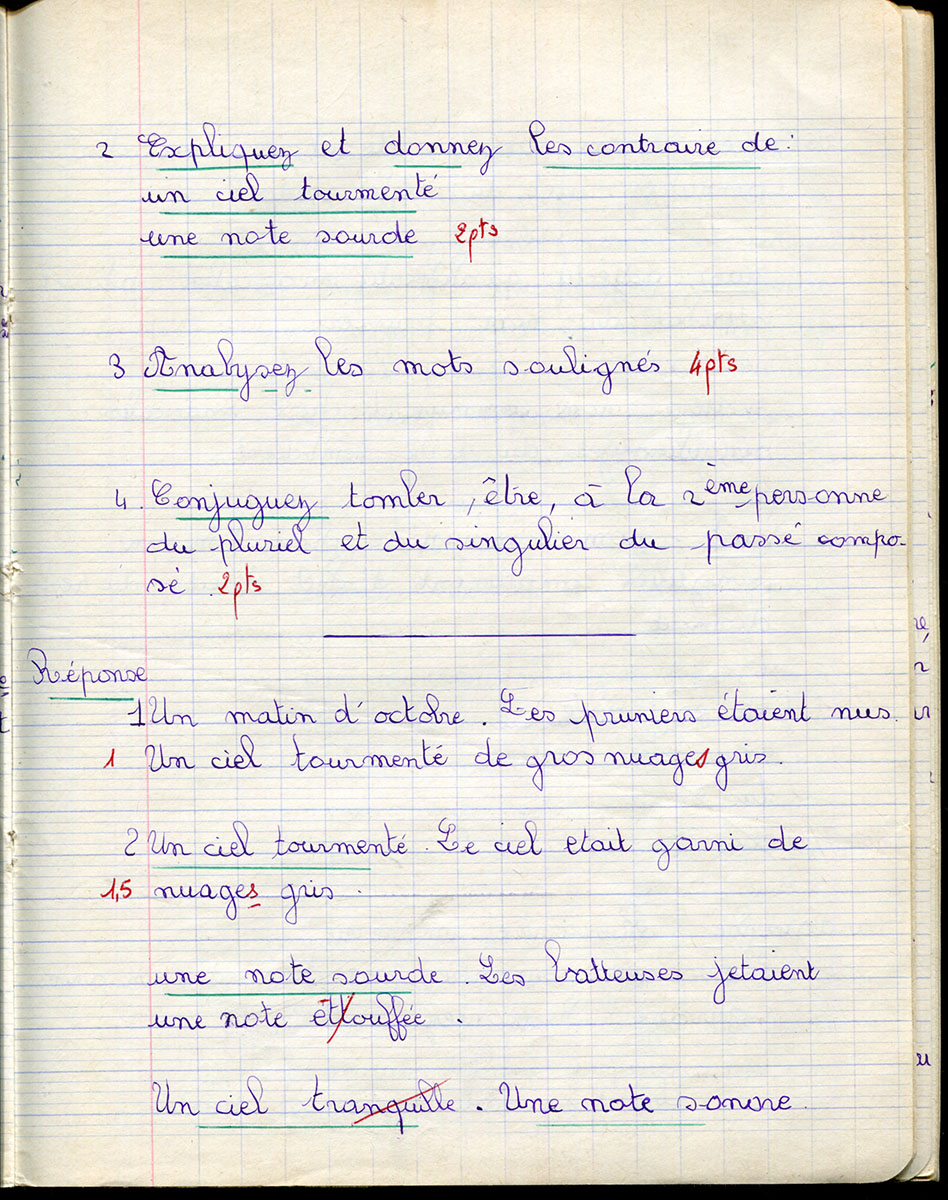 2 Expliquez et donnez les contraire de :
un ciel tourmenté
une note sourde 2pts
3 Analysez les mots soulignés 4pts
4. Conjuguez tomber, être, à la 2ème personne
du pluriel et du singulier du passé compo-
sé. 2pts
Réponse
1 Un matin d'octobre. Les pruniers étaient nus.
1 Un ciel tourmenté de gros nuages gris.
2 Un ciel tourmenté. Le ciel etait garni de
1,5 nuages gris.
une note sourde. Les batteuses jetaient
une note ettouffée.
Un ciel tranquille. Une note sonore.